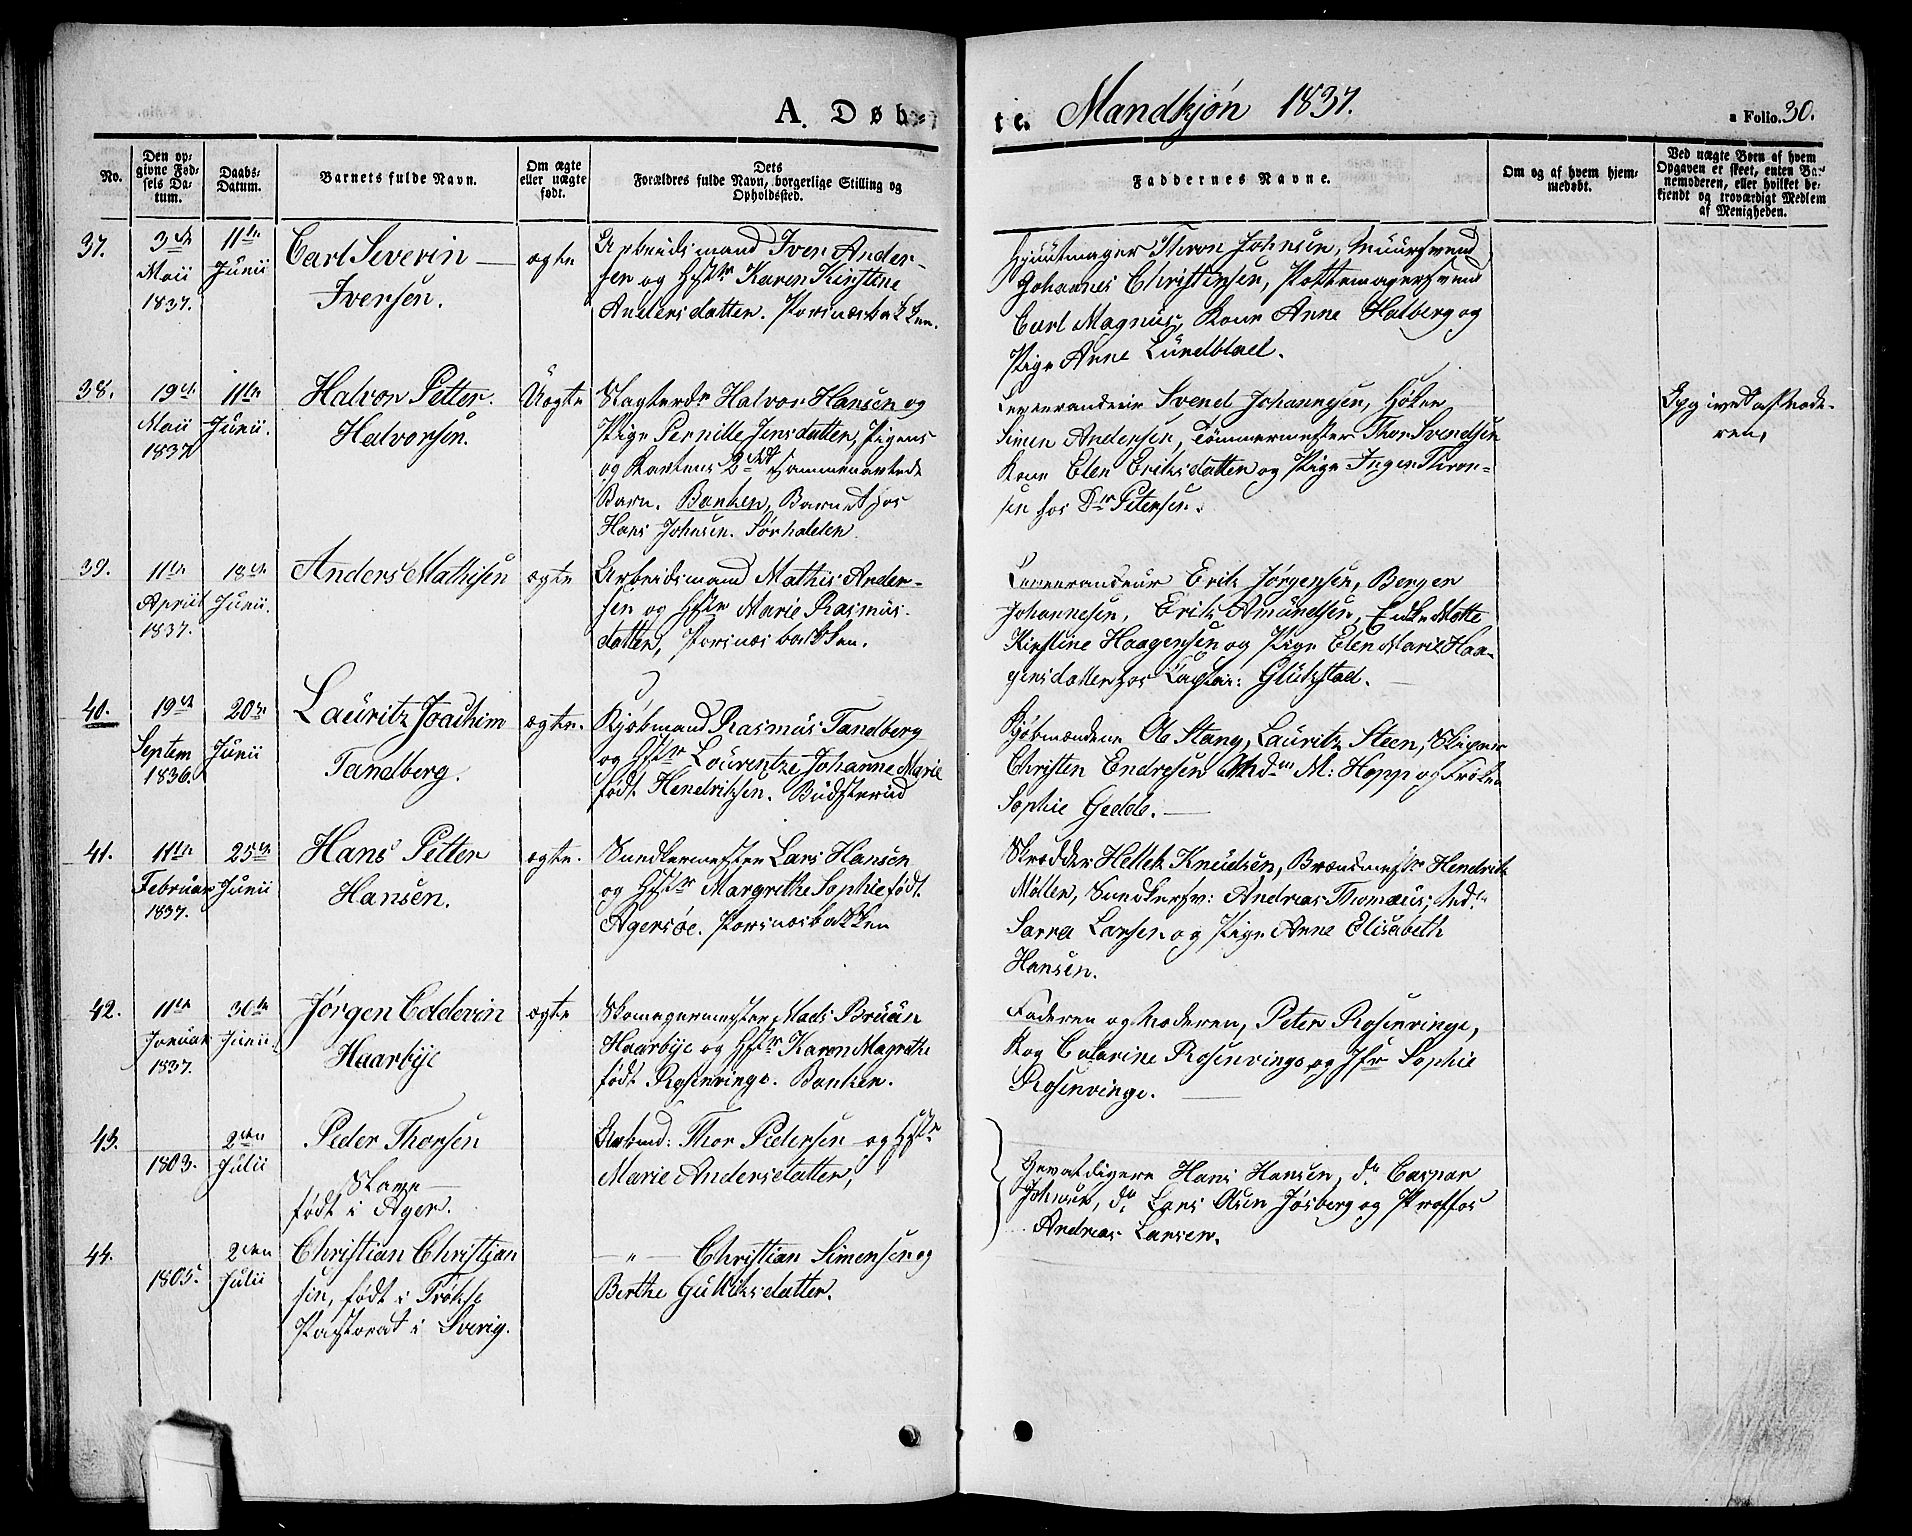 A. Døbte. Mandkjøn 1837. a Folio. 30.
No.
Den op-
givne Fød-
sels Da-
tum.
Daabs-
Datum.
Barnets fulde Navn.
Om ægte
eller uægte
født.
Dets
Forældres fulde Navn, borgerlige Stilling og
Opholdssted.
Faddernes Navne.
Om og af hvem hjem-
medøbt.
Ved uægte Børn af hvem
Opgaven er skeet, enten Bar-
nemoderen, eller hvilket be-
kjendt og troværdigt Medlem
af Menigheden.
37.
3de
Maii
1837.
11te
Junii
Carl Severin
Iversen.
ægte
Arbeidsmand Iver Ander-
sen og Hstr Karen Kirstine
Andersdatter. Porsnæsbakken.
Thron Johnsen, Muursvend
Johannes Christensen, Pottemagersvend
Carl Magnus, Kone Anne Halberg og
Pige Anne Lundblael.
38.
19de
Maii
1837
11te
Junii.
Halvor Petter
Halvorsen.
Uægte
Halvor Hansen og
Pige Pernille Jensdatter, Pigens
og Karlens 2det sammenavlede
Barn. Banken, Barnet hos
Hans Johnsen. Sørhalden.
Leverandeur Svend Johannesen, Høker
Simen Andersen, Tømmermester Thor Svendsen
Kone Elen Eriksdatter og Pige Inger Thron-
sen hos Dr Petersen.
Opgivet af Mode-
ren,
39.
11te
April
1837.
18de
Junii.
Anders Mathisen
ægte
Arbeidsmand Mathis Ander-
sen og Hstr Marie Rasmus-
datter, Porsnæsbakken.
Leverandeur Erik Jørgensen, Borger
Johannesen, Erik Amundsen, Enke Mette
Kirstine Haagensen og Pige Elen Marie Haa-
gensdatter hos Capt: Glükstad.
40.
19de
Septem
1836.
20de
Junii
Lauritz Joachim
Tandberg.
ægte.
Kjøbmand Rasmus Tandberg
og Hstr Laurentze Johanne Marie
født Hendriksen. Budsterud
Kjøbmændene Ole Stang, Lauritz Steen, Skipper
Christen Endresen Mdm M: Hopp og Frøken
Sophie Gedde.
41.
11te
Februar
1837.
25de
Junii
Hans Petter
Hansen.
ægte.
Snedkermester Lars Hansen
og Hstr Margrethe Sophie født
Agersøe. Porsnæsbakken
Skrædder Hellek Knudsen, Brændmestr Hendrik
Møller, Snedkersv: Andreas Thomæus,
Sarra Larsen og Pige Anne Elisabeth
Hansen.
42.
11te
Januar
1837.
30te
Junii.
Jørgen Coldevin
Haarbye
ægte
Skomagermester Mads Bruun
Haarbye og Hstr Karen Magrethe
født Rosenvinge. Banken.
Faderen og Moderen, Peter Rosenvinge,
Catarine Rosenvinge og Jfr Sophie
Rosenvinge.
43.
1803.
2den
Julii
Peder Thorsen
Slave
født i Ager.
Arbmd: Thor Pedersen og Hstr
Marie Andersdatter,
Gevaldigere Hans Hansen, do Caspar
Johnsen, do Lars Olsen Jøsberg og Proffos
Andreas Larsen.
44.
1805.
2den
Julii
Christian Christian
sen, født i Frökse
Pastorat i Sverig.
— " — Christian Simensen og
Berthe Gulliksdatter.